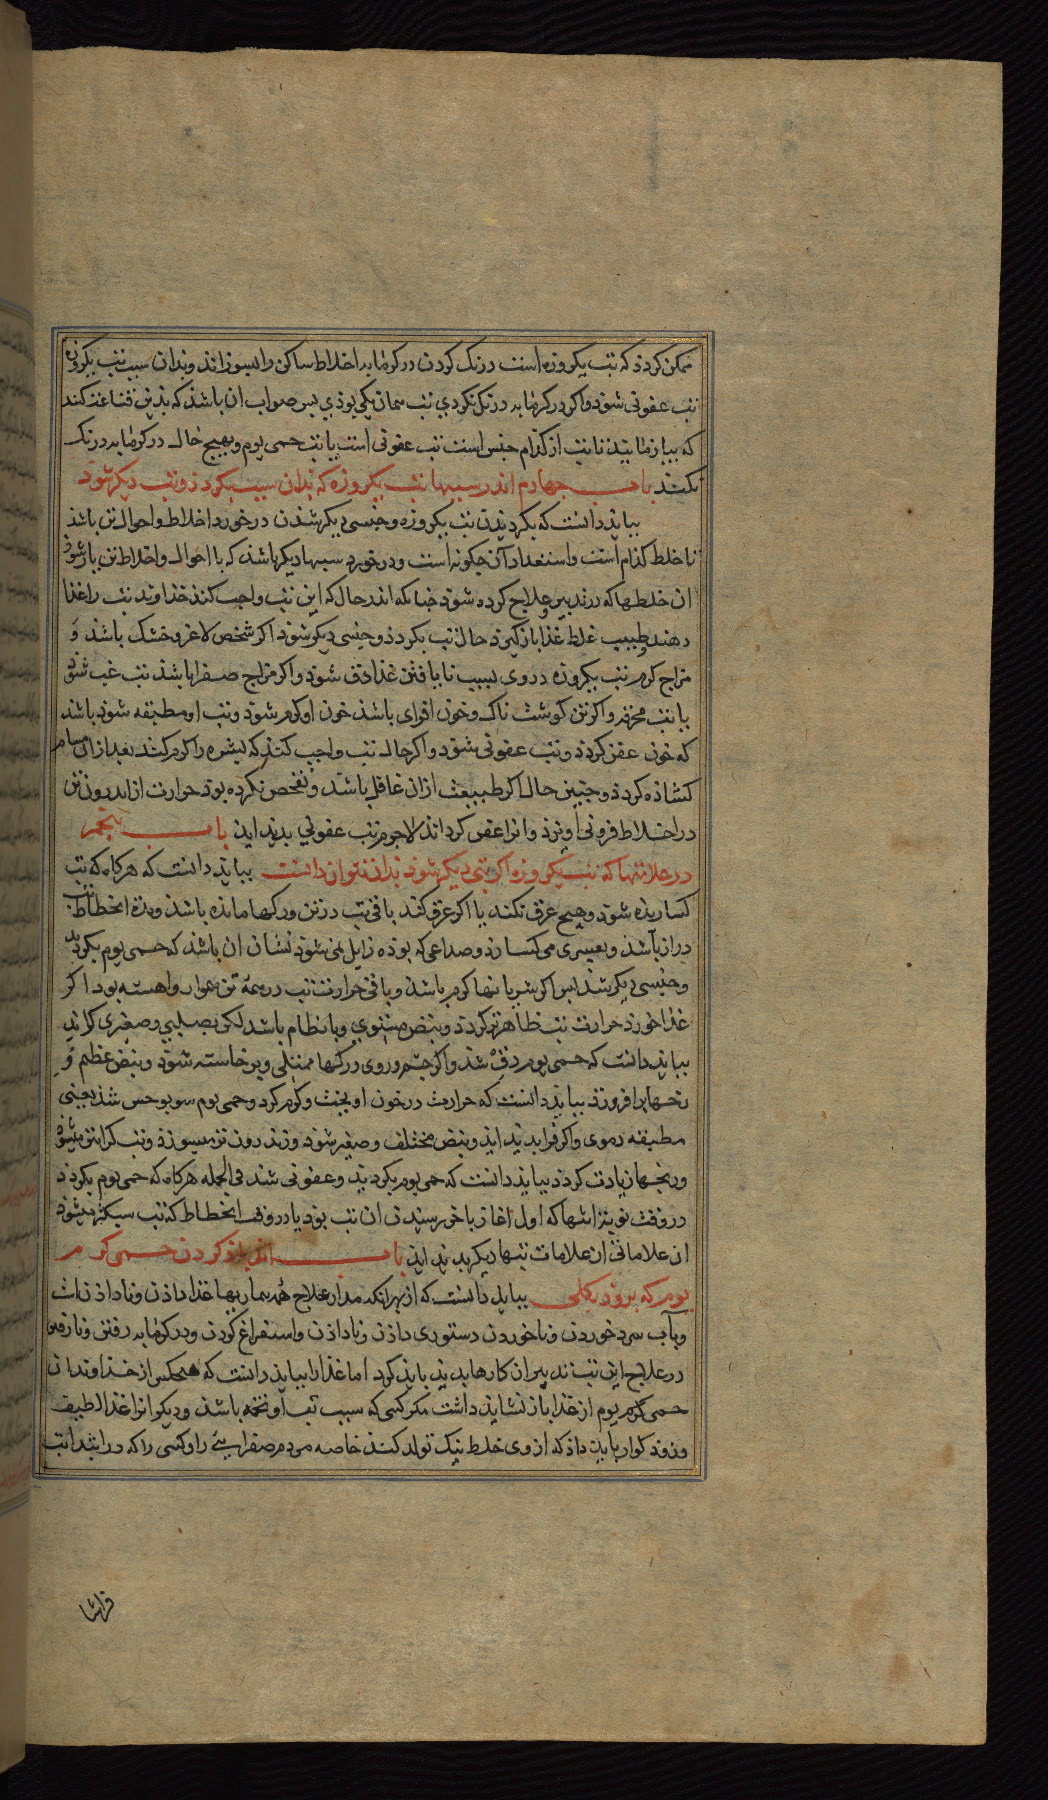 ممکن کردد که تب یکروزه است درنک کردن در کرمابه اخلاط ساکن را بسوزاند و بدان سبب تب یکروزه
تب عفونی شود و اکر در کرمابه درنک نکردی تب همان یکی بوذی بس صواب ان باشذ که بذین قناعت کنند
که بیازمایند تا تب از کدام جنس است تب عفونی است یا تب حمی یوم و بهیچ حال در کرمابه درنک
نکنند باب جهارم اندر سببها تب یکروزه که بدان سبب بکردذ و تب دیکر شود
بباید دانست که بکردیدن تب یکروزه و جنسی دیکر شدن در خورد اخلاط و احوال تن باشد
تا خلط کدام است و استعداد آن جکونه است و در خورد سببها دیکر باشذ که با احوال و اخلاط تن یار شوذ
ان خلطها که در تدبیر و علاج کرده شود جنانکه اندر حال که این تب واجب کند خذاوند تب را غذا
دهند و طبیب غلط غذا باز کیرد حال تب بکردذ و جنسی دیکر شود اکر شخص لاغر و خشک باشذ و
مزاج کرم تب یکروزه در وی بسبب نایافتن غذا دق شود و اکر مزاج صفرا باشذ تب غب شود
یا تب محرقه و اکر تن کوشت ناک و خون افزای باشذ خون او کرم شود و تب او مطبقه شود باشد
که خون عفن کردذ و تب عفونی شود و اکر حال تب واجب کند که بشره را کرم کنند بعد ازان مسام
کشاذه کردذ و جنین حال اکر طبیب ازان غافل باشد و تفحص نکرده بود حرارت از اندرون تن
در اخلاط فزونی اویزد و انرا عفن کرداند لاجرم تب عفونی بدید اید باب بنجم
در علامتها که تب یکروزه اکر تبی دیکر شود بدان بتوان دانست بباید دانست که هرکاه که تب
کساریذه شود و هیچ عرق نکند یا اکر عرق کند باقی تب در تن و رکها مانده باشد و مدة انحطاط تب
دراز باشذ و بعسری می کسارد و صداعی که بوده زایل نمی شود نشان ان باشذ که حمی یوم بکردید
و جنسی دیکر شد بس اکر شریانها کرم باشد و باقی حرارت تب در همهٔ تن هموار و اهسته بود اکر
غذا خورد حرارت تب ظاهرتر کردد و نبض مستوی و بانظام باشد لکن بصلبی و صغیری کراید
بباید دانست که حمی یوم دق شد و اکر جشم و روی و رکها ممتلی و برخاسته شود و نبض عظیم و
رخها برافروزد بباید دانست که حرارت در خون اویخت و کرم کرد و حمی یوم سونوخس شد یعنی
مطبقه دموی و اکر فرا بدید اید و نبض مختلف و صغیر شود و زنذرون تن میسوزذ و تب کرانتر میشود
و رنجها زیادت کردد بباید دانست که حمی یوم بکردید و عفونی شد فی الجمله هرکاه که حمی یوم بکردد
در وقت نوبتها انتها که اول اغاز باخر رسیدن ان تب بود یا در وقت انحطاط که تب سبکتر میشود
ان علاماتی ان علامات تبها دیکر بدید اید باب اندر یاد کردن حمی کرم
یوم که بروذ بکلی بباید دانست که از بهر انکه مدار علاج همه بیماریها غذا دادن و نادادن است
و باب سرد خوردن و ناخوردن دستوری دادن و نادادن و استفراغ کردن و در کرمابه رفتن و نارفتن
در علاج این تب تدبیر ان کارها بدید باید کرد اما غذا را بباید دانست که هیجکس از خذاوندان
حمی کرم یوم از غذا باز نشاید داشت مکر کسی که سبب تب او تخمه باشذ و دیکر انرا غذا لطیف
و زود کوار باید داد که از وی خلط نیک تولد کند خاصه مردم صفرایی را و کسی را که در ابتدا تب
فراشا